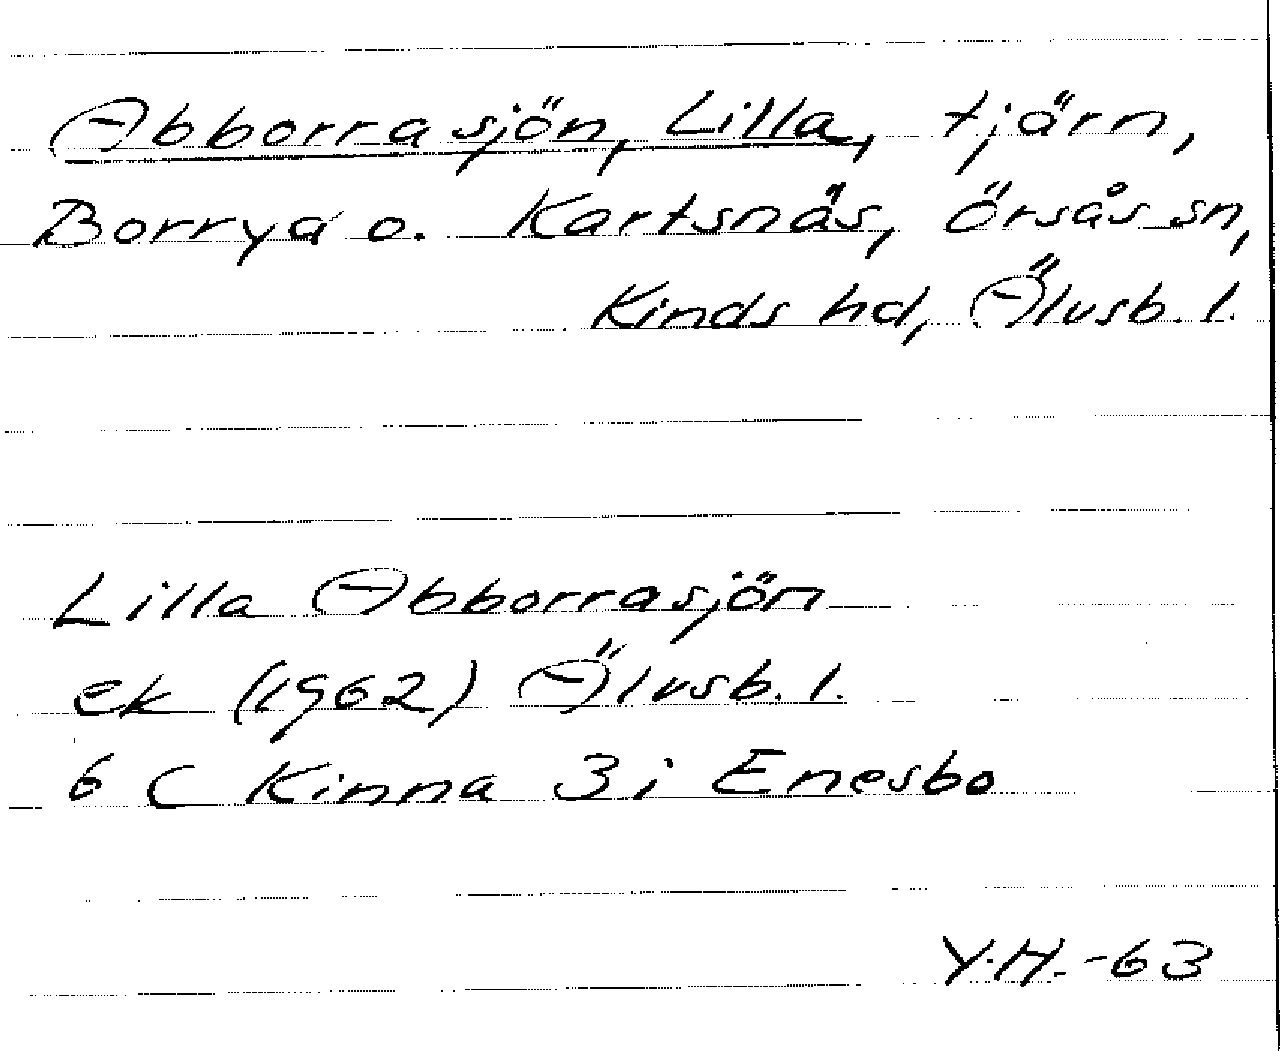 Abborrasjön, Lilla, tjärn,
Borrya o. Kartsnäs, Örsås sn,
Kinds hd, Älvsb. l.
Lilla Abborrasjön
ek (1962) Älvsb. l.
6 C Kinna 3 i Enesbo
Y.H. -63